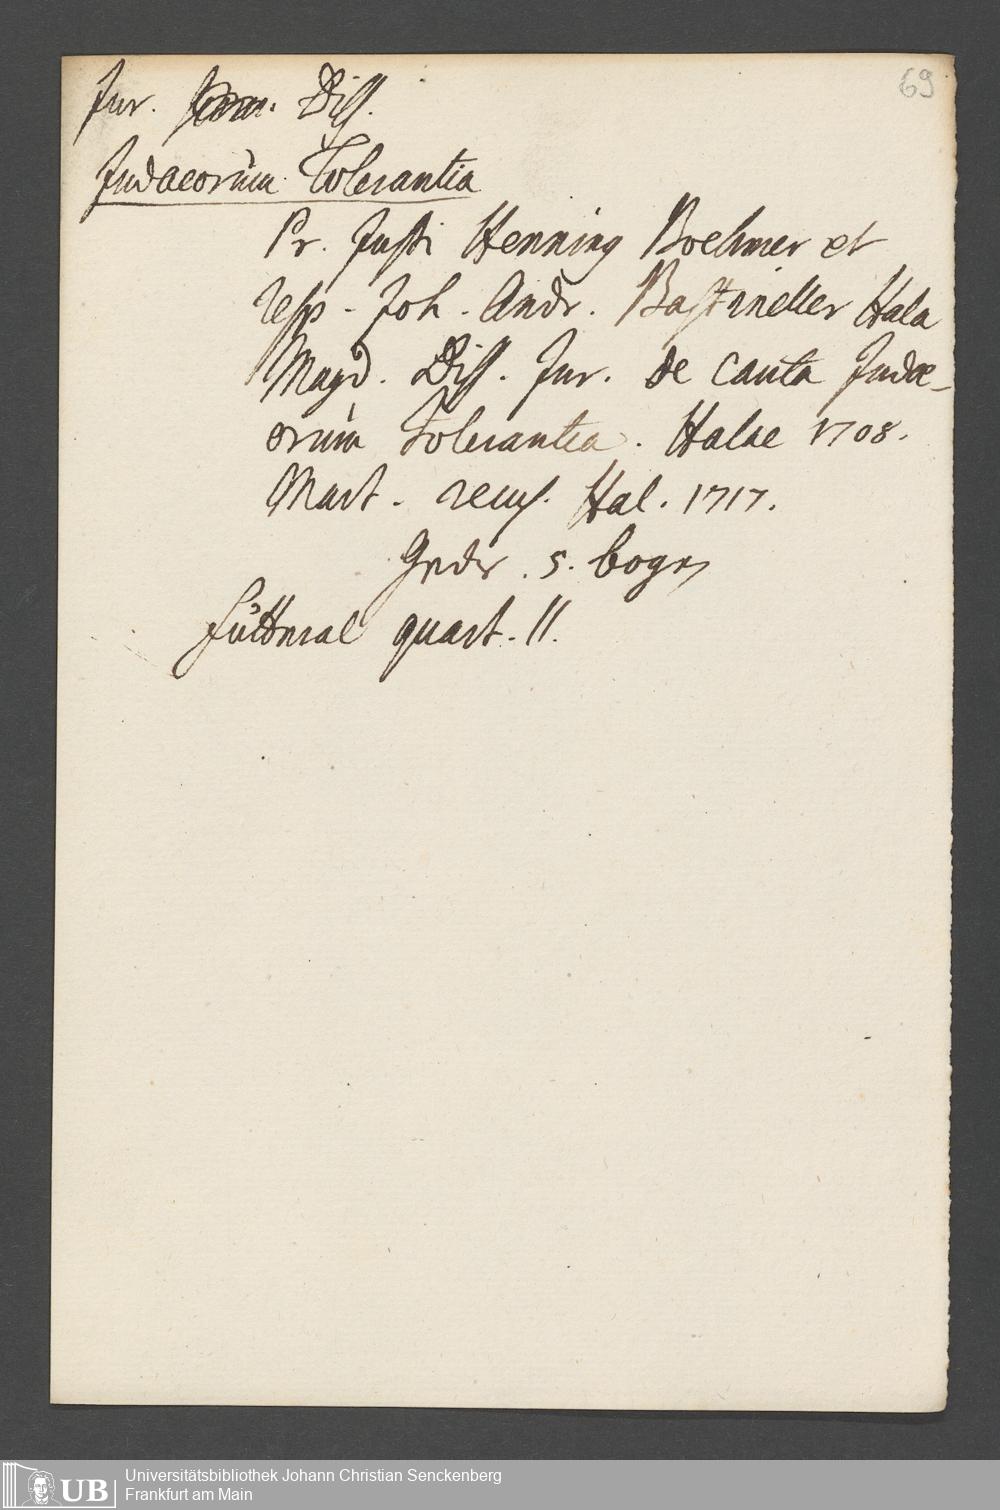 69
Jur. Diss.
Judaeorum Tolerantia
Pr. Justi Henning Boehmer et
resp. Joh. Andr. Bastineller Hala
Magd. Diss. Jur. de cauta Judæ-
orum Tolerantia. Halae 1708.
Mart. recus. Hal. 1717.
5. bogen
Futteral quart. 11.
UB
Universitätsbibliothek Johann Christian Senckenberg
Frankfurt am Main